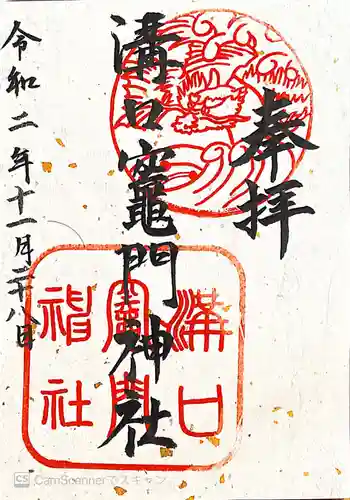 奉拝
溝口竈門神社
令和二年十一月二十八日
溝口
竈門
神社
CS CamScannerでスキャン